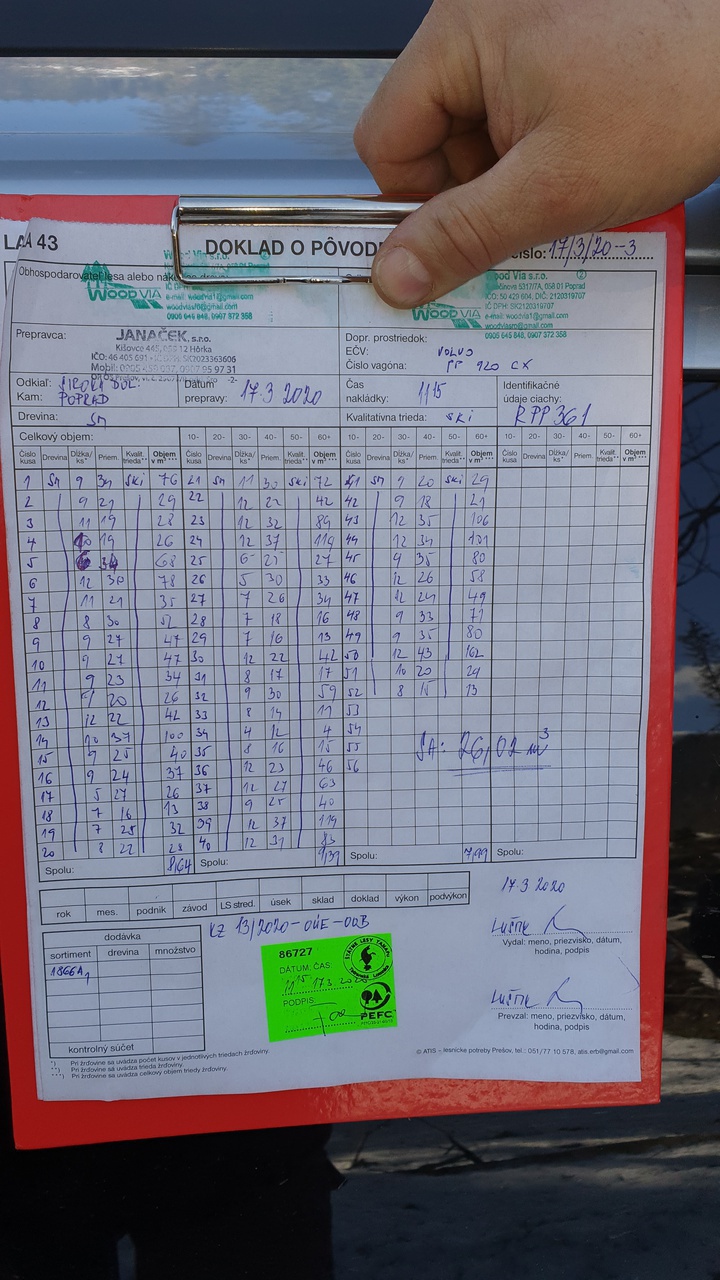 LA 43
DOKLAD O PÔVODE
číslo: 17/3/20-3
Obhospodarovateľ lesa alebo
Wood Via s.r.o.
IČ DPH: SK2120319707
e-mail: woodvia1@gmail.com
woodviasm@gmail.com
0905 645 848, 0907 372 358
WOOD VIA
Wood Via s.r.o. 2
058 01 Poprad
IČO: 50 429 604, DIČ: 2120319707
IČ DPH: SK2120319707
e-mail: woodvia1@gmail.com
woodviasm@gmail.com
0905 645 848, 0907 372 358
WOOD VIA
Prepravca:
JANAČEK, s.r.o.
Kišovce 445, 059 12 Hôrka
IČO: 46 405 691 • IČ DPH: SK2023363606
-2-
Dopr. prostriedok:
EČV: VOLVO
Číslo vagóna: PP 920 CX
Odkiaľ: ŠIROKÁ DOL.
Kam: POPRAD
Dátum prepravy: 17.3 2020
Čas nakládky: 11 15
Identifikačné údaje ciachy: RPP 361
Drevina: sm
Kvalitatívna trieda: SKI
Celkový objem: 10- 20- 30- 40- 50- 60+ 10- 20- 30- 40- 50- 60+ 10- 20- 30- 40- 50- 60+
Číslo kusa Drevina Dĺžka/ ks* Priem. Kvalit. trieda** Objem v m³***
1 Sm 9 34 SKI 76 21 sm 11 30 SKI 72 41 sm 9 20 SKI 29
2 9 21 29 22 12 22 42 42 9 18 21
3 11 19 28 23 12 32 89 43 12 35 106
4 10 19 26 24 12 37 119 44 12 34 101
5 6 34 68 25 6 25 27 45 9 35 80
6 12 30 78 26 5 30 33 46 12 26 58
7 11 21 35 27 7 26 34 47 12 24 49
8 8 30 52 28 7 18 16 48 9 33 71
9 9 27 47 29 7 16 13 49 9 35 80
10 9 27 47 30 12 22 42 50 12 43 162
11 9 23 34 31 8 17 17 51 10 20 29
12 9 20 26 32 9 30 59 52 8 15 13
13 12 22 42 33 8 14 11 53
14 10 37 100 34 4 12 4 54
15 9 25 40 35 8 16 15 55
16 9 24 37 36 12 23 46 56
17 5 27 26 37 12 27 63
18 7 16 13 38 9 25 40
19 7 25 32 39 12 37 119
20 8 22 28 40 12 31 83
SA: 26,02 m³
Spolu: 8,64 Spolu: 9,39 Spolu: 7,99 Spolu:
rok mes. podnik závod LS stred. úsek sklad doklad výkon podvýkon
17.3 2020
KZ 13/2020-OÚE-OOB
dodávka
sortiment drevina množstvo
1866A1
kontrolný súčet
86727
DÁTUM, ČAS:
11 15 17.3. 2020
PODPIS:
ŠTÁTNE LESY TANAPU
PEFC
Vydal: meno, priezvisko, dátum,
hodina, podpis
Prevzal: meno, priezvisko, dátum,
hodina, podpis
*) Pri žrďovine sa uvádza počet kusov v jednotlivých triedach žrďoviny.
**) Pri žrďovine sa uvádza trieda žrďoviny.
***) Pri žrďovine sa uvádza celkový objem triedy žrďoviny.
© ATIS – lesnícke potreby Prešov, tel.: 051/77 10 578, atis.erb@gmail.com